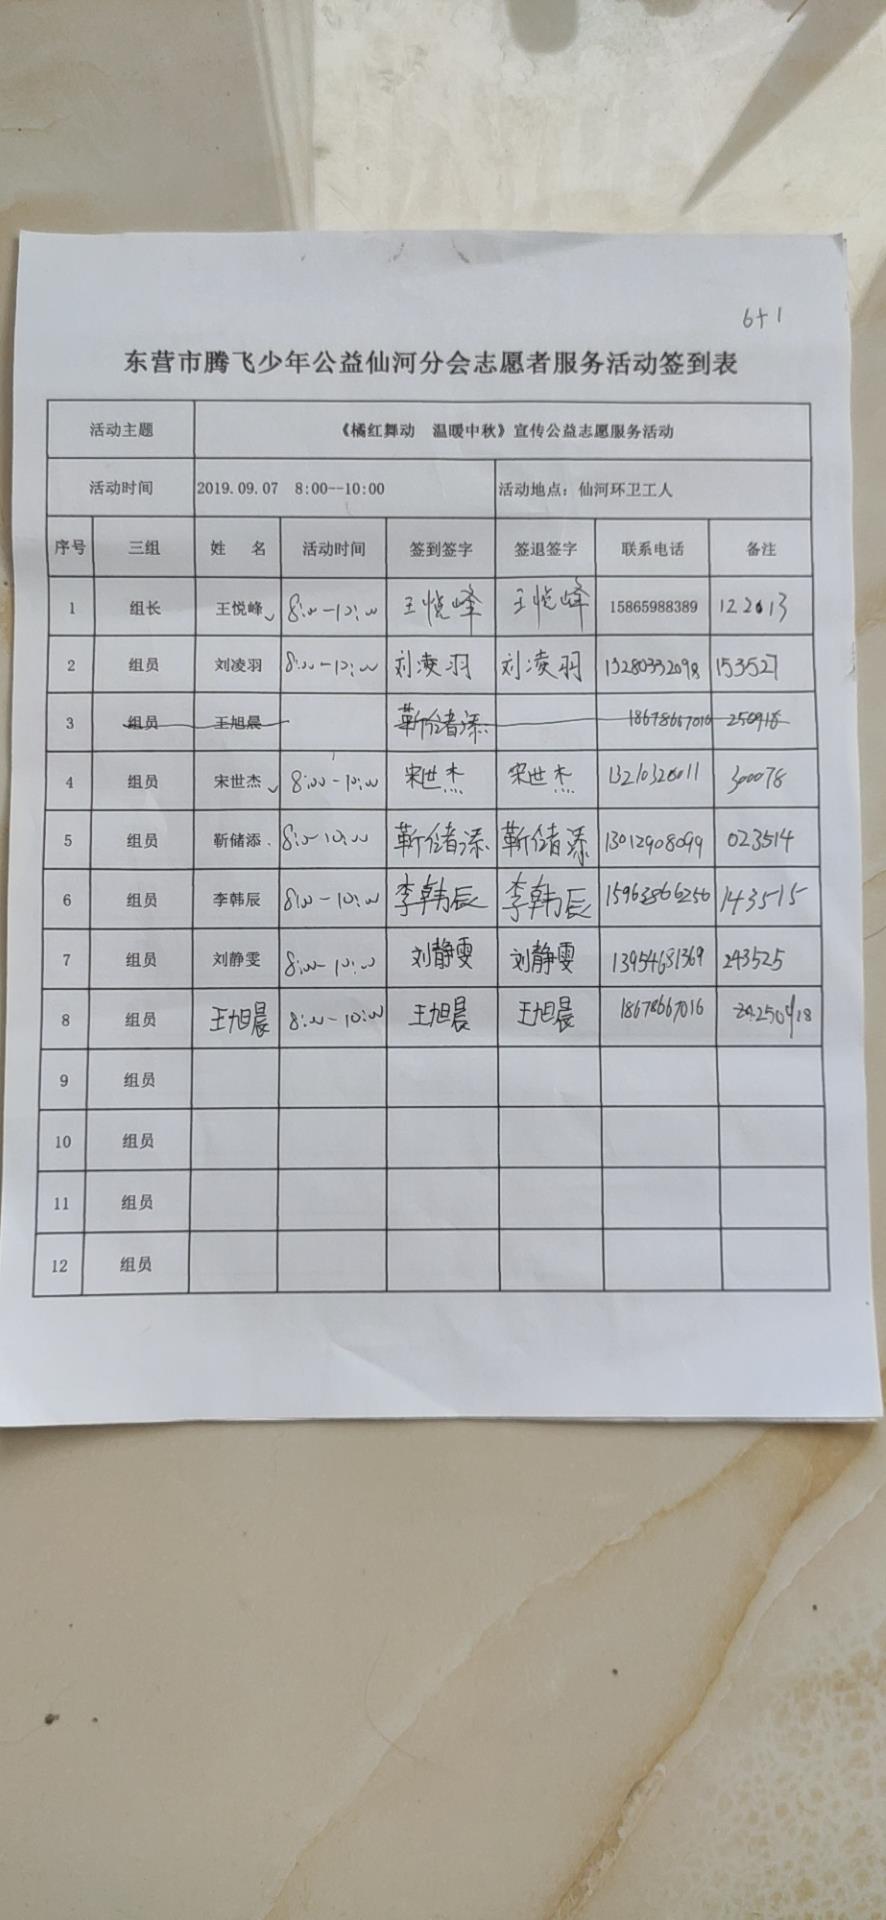 6+1
东营市腾飞少年公益仙河分会志愿者服务活动签到表
活动主题 《橘红舞动 温暖中秋》宣传公益志愿服务活动
活动时间 2019.09.07 8:00--10:00 活动地点：仙河环卫工人
序号 三组 姓 名 活动时间 签到签字 签退签字 联系电话 备注
1 组长 王悦峰 8:00-10:00 王悦峰 王悦峰 15865988389 122613
2 组员 刘凌羽 8:00-10:00 刘凌羽 刘凌羽 13280332098 153527
3 组员 王旭晨 靳储添 18678667016 250918
4 组员 宋世杰 8:00-10:00 宋世杰 宋世杰 13210326011 300078
5 组员 靳储添 8:00-10:00 靳储添 靳储添 13012908099 023514
6 组员 李韩辰 8:00-10:00 李韩辰 李韩辰 15963866256 143515
7 组员 刘静雯 8:00-10:00 刘静雯 刘静雯 13954681369 243525
8 组员 王旭晨 8:00-10:00 王旭晨 王旭晨 18678667016
9 组员
10 组员
11 组员
12 组员